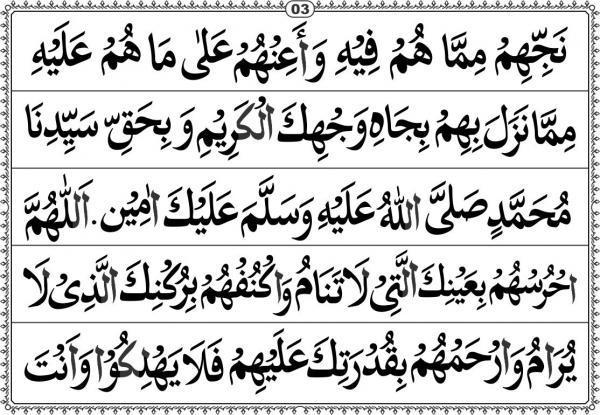 03
نَجِّهِمْ مِمَّا هُمْ فِيْهِ وَأَعِنْهُمْ عَلٰى مَا هُمْ عَلَيْهِ
مِمَّا نَزَلَ بِهِمْ بِجَاهِ وَجْهِكَ الْكَرِيْمِ وَ بِحَقِّ سَيِّدِنَا
مُحَمَّدٍ صَلَّى اللّٰهُ عَلَيْهِ وَسَلَّمَ عَلَيْكَ اٰمِيْن. اَللّٰهُمَّ
احْرُسْهُمْ بِعَيْنِكَ الَّتِىْ لَا تَنَامُ وَاكْنُفْهُمْ بِرُكْنِكَ الَّذِىْ لَا
يُرَامُ وَارْحَمْهُمْ بِقُدْرَتِكَ عَلَيْهِمْ فَلَا يَهْلِكُوْا وَاَنْتَ